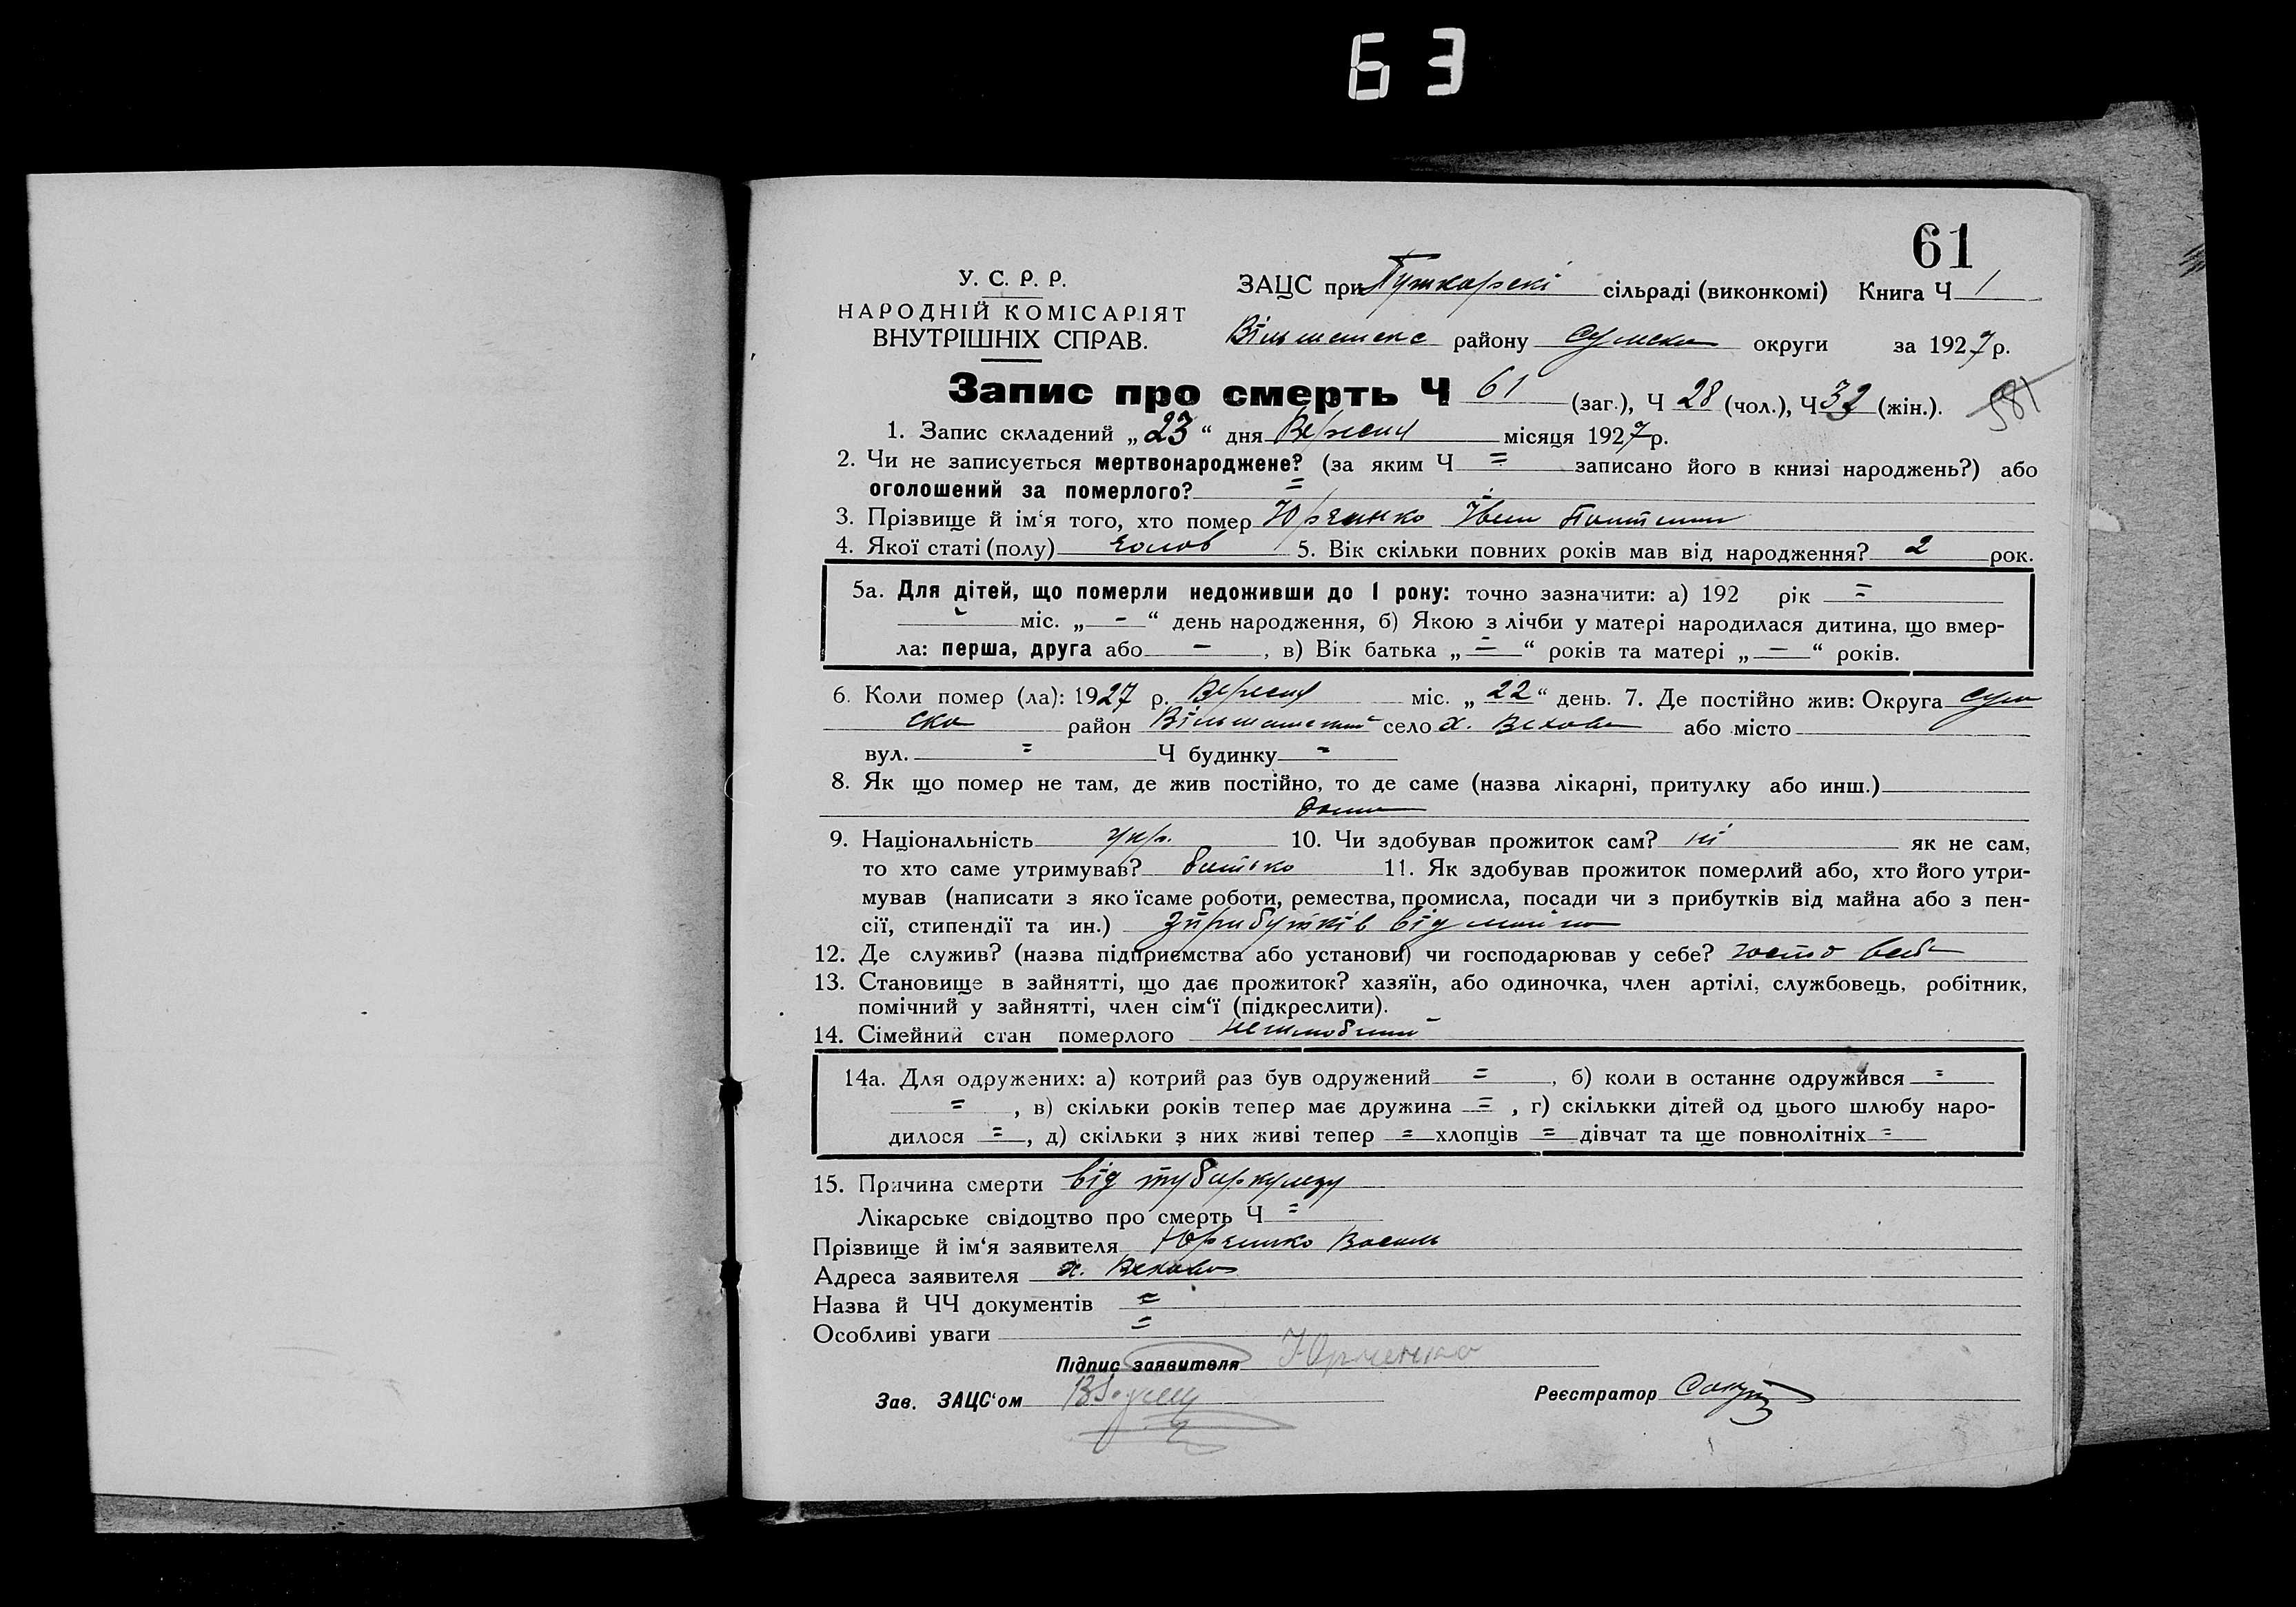 63
61
У. С. Р. Р.
НАРОДНІЙ КОМІСАРІЯТ
ВНУТРІШНІХ СПРАВ.
ЗАЦС при Пушкарскі сільраді (виконкомі) Книга Ч 1
району округи за 1927 р.
Запис про смерть Ч 61 (заг.), Ч 28 (чол.), Ч 32 (жін.). 581
1. Запис складений „23“ дня Вересня місяця 1927 р.
2. Чи не записується мертвонароджене? (за яким Ч = записано його в книзі народжень?) або
оголошений за померлого? =
3. Прізвище й ім‘я того, хто помер Юрченко Іван
4. Якої статі (полу) чолов 5. Вік скільки повних років мав від народження? 2 рок.
5а. Для дітей, що померли недоживши до 1 року: точно зазначити: а) 192 рік =
міс. „ - “ день народження, б) Якою з лічби у матері народилася дитина, що вмер-
ла: перша, друга або - , в) Вік батька „ = “ років та матері „ = “ років.
6. Коли помер (ла): 1927 р. Вересня міс. „ 22 “ день. 7. Де постійно жив: Округа Сум
ска район Вільшанський село х. або місто
вул. = Ч будинку =
8. Як що помер не там, де жив постійно, то де саме (назва лікарні, притулку або инш.)
дома
9. Національність укр. 10. Чи здобував прожиток сам? ні як не сам,
то хто саме утримував? батько 11. Як здобував прожиток померлий або, хто його утри-
мував (написати з яко їсаме роботи, ремества, промисла, посади чи з прибутків від майна або з пен-
сії, стипендії та ин.) Зприбутків від майна
12. Де служив? (назва підприємства або установи) чи господарював у себе?
13. Становище в зайнятті, що дає прожиток? хазяїн, або одиночка, член артілі, службовець, робітник,
помічний у зайнятті, член сім‘ї (підкреслити).
14. Сімейний стан померлого нешлюбний
14а. Для одружених: а) котрий раз був одружений = , б) коли в останнє одружився =
= , в) скільки років тепер має дружина = , г) скількки дітей од цього шлюбу наро-
дилося = , д) скільки з них живі тепер = хлопців = дівчат та ще повнолітніх =
15. Причина смерти від туберкулезу
Лікарське свідоцтво про смерть Ч =
Прізвище й ім‘я заявителя Юрченко Василь
Адреса заявителя х.
Назва й ЧЧ документів =
Особливі уваги =
Підпис заявителя Юрченко
Зав. ЗАЦС‘ом
Реєстратор